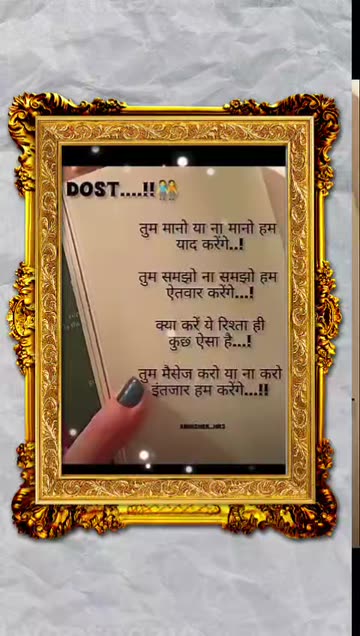 DOST....!!👬
तुम मानो या ना मानो हम
याद करेंगे..!
तुम समझो ना समझो हम
ऐतवार करेंगे...!
क्या करें ये रिश्ता ही
कुछ ऐसा है...!
तुम मैसेज करो या ना करो
इंतजार हम करेंगे...!!